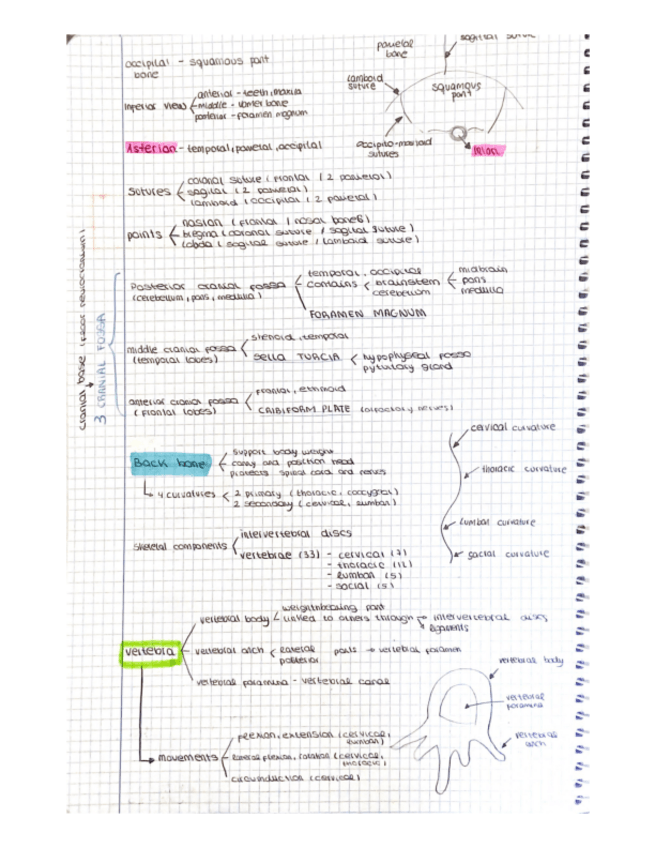 sagittal
parietal bone
occipital - squamous part
bone
lamboid suture
squamous part
inferior view
anterior - teeth, maxila
middle - vomer bone
posterior - foramen magnum
Asterion - temporal, parietal, occipital
occipito-mastoid sutures
inion
sutures
coronal suture (frontal / 2 parietal)
sagital (2 parietal)
lamboid (occipital / 2 parietal)
points
nasion (frontal / nasal bones)
bregma (coronal suture / sagital suture)
labda (sagital suture / lamboid suture)
cranial base (floor neurocranium)
3 CRANIAL FOSSA
Posterior cranial fossa
(cerebellum, pons, medulla)
temporal, occipital
contains
brainstem
cerebellum
midbrain
pons
medulla
FORAMEN MAGNUM
middle cranial fossa
(temporal lobes)
sfenoid, temporal
SELLA TURCIA
hypophyseal fossa
pytutory gland
anterior cranial fossa
(frontal lobes)
frontal, ethmoid
CRIBIFORM PLATE (olfactory nerves)
Back bone
support body weight
carry and position head
protects spinal cord and nerves
4 curvatures
2 primary (thoracic, coccygeal)
2 secondary (cervical, lumbar)
cervical curvature
thoracic curvature
lumbar curvature
sacial curvature
skeletal components
intervertebral discs
vertebrae (33) - cervical (7)
- thoracic (12)
- lumbar (5)
- social (5)
vertebra
vertebral body
weightnbearing part
linked to others through
intervertebral discs
ligaments
vertebral arch
lateral
posterior
parts → vertebral foramen
vertebral foramina - vertebral canal
movements
flexion, extension (cervical, lumbar)
lateral flexion, rotation (cervical, thoracic)
circumduction (cervical)
vertebral body
vertebral foramina
vertebral arch